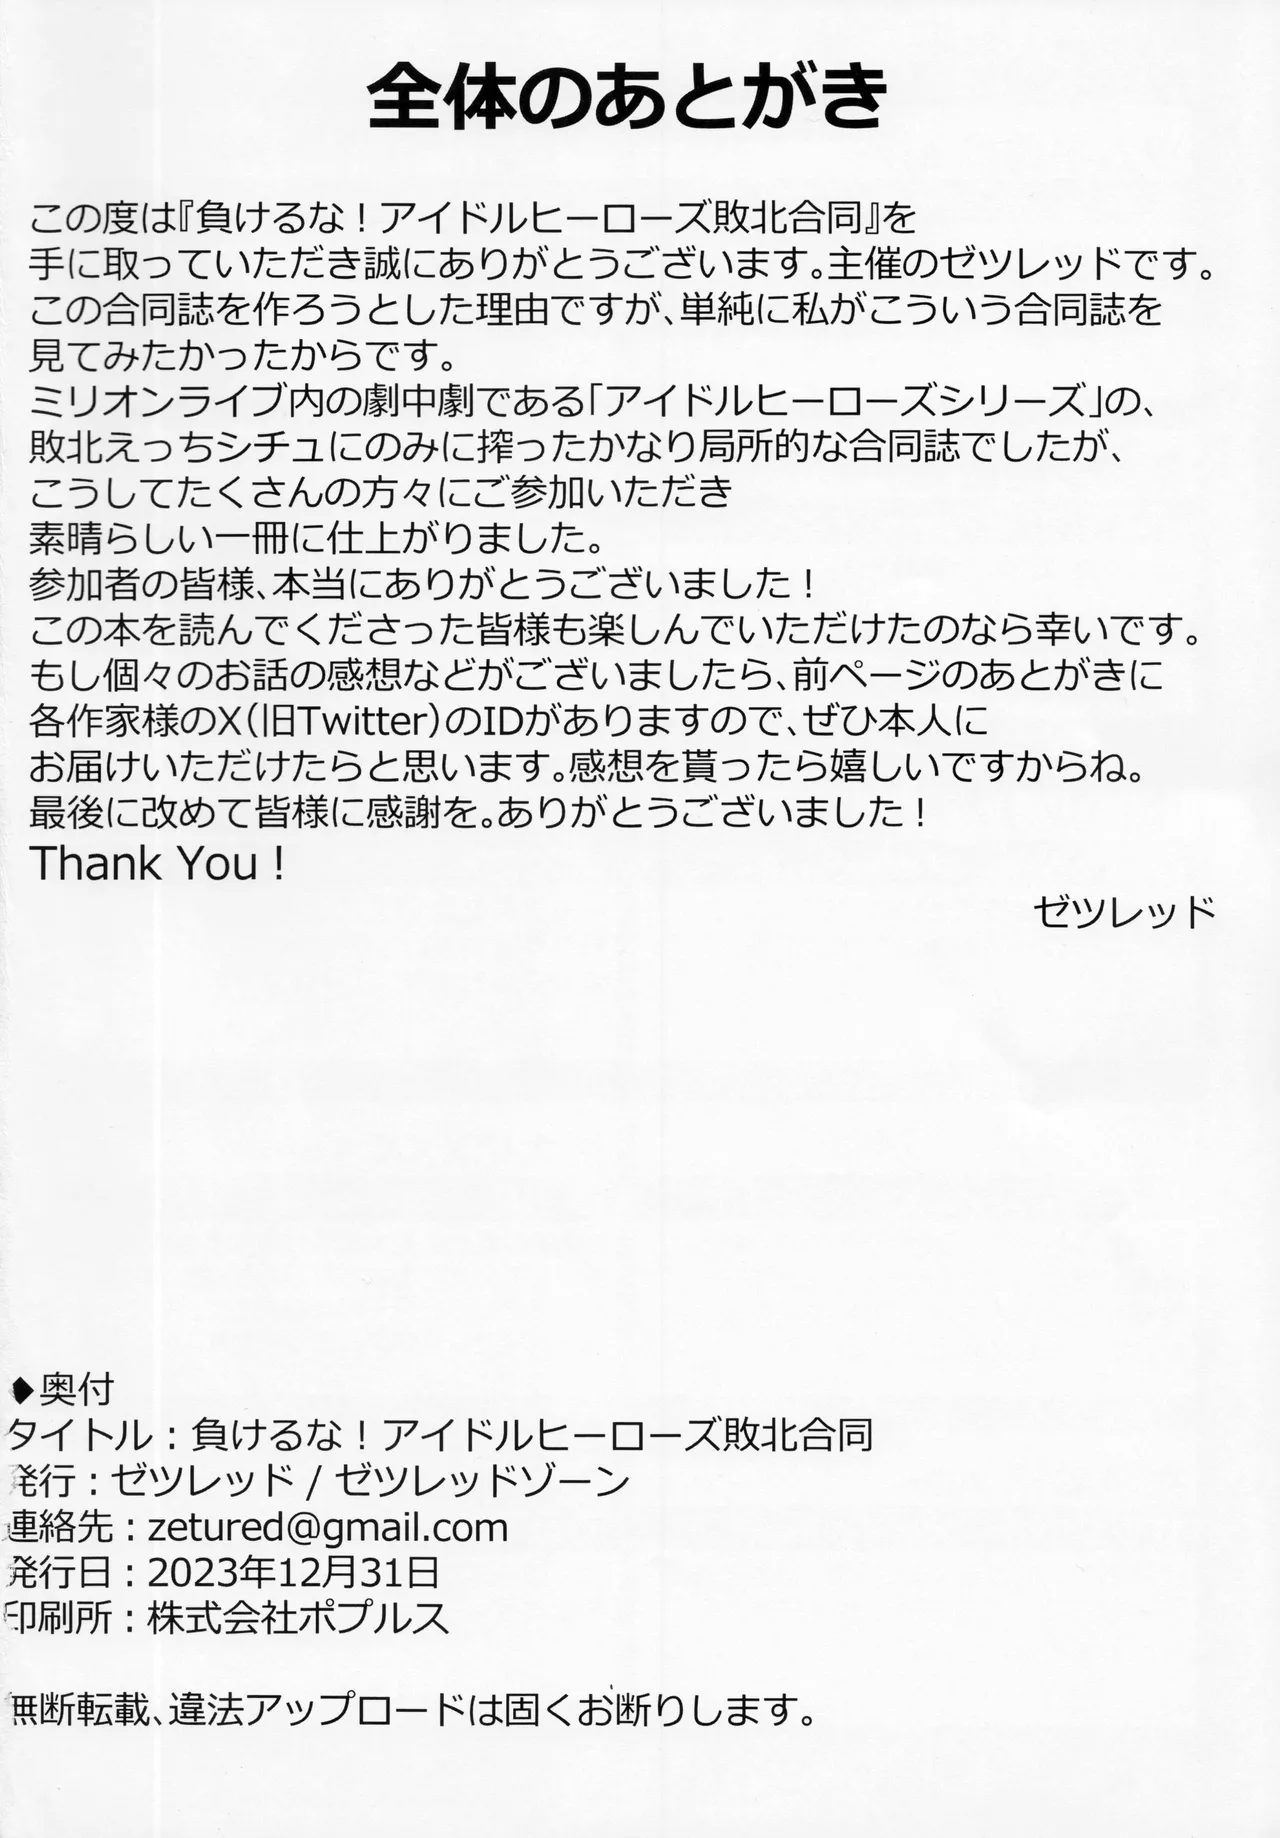 全体のあとがき
この度は『負けるな！アイドルヒーローズ敗北合同』を
手に取っていただき誠にありがとうございます。主催のゼツレッドです。
この合同誌を作ろうとした理由ですが、単純に私がこういう合同誌を
見てみたかったからです。
ミリオンライブ内の劇中劇である「アイドルヒーローズシリーズ」の、
敗北えっちシチュにのみに搾ったかなり局所的な合同誌でしたが、
こうしてたくさんの方々にご参加いただき
素晴らしい一冊に仕上がりました。
参加者の皆様、本当にありがとうございました！
この本を読んでくださった皆様も楽しんでいただけたのなら幸いです。
もし個々のお話の感想などがございましたら、前ページのあとがきに
各作家様のX（旧Twitter）のIDがありますので、ぜひ本人に
お届けいただけたらと思います。感想を貰ったら嬉しいですからね。
最後に改めて皆様に感謝を。ありがとうございました！
Thank You！
ゼツレッド
◆奥付
タイトル：負けるな！アイドルヒーローズ敗北合同
発行：ゼツレッド / ゼツレッドゾーン
連絡先：zetured@gmail.com
発行日：2023年12月31日
印刷所：株式会社ポプルス
無断転載、違法アップロードは固くお断りします。